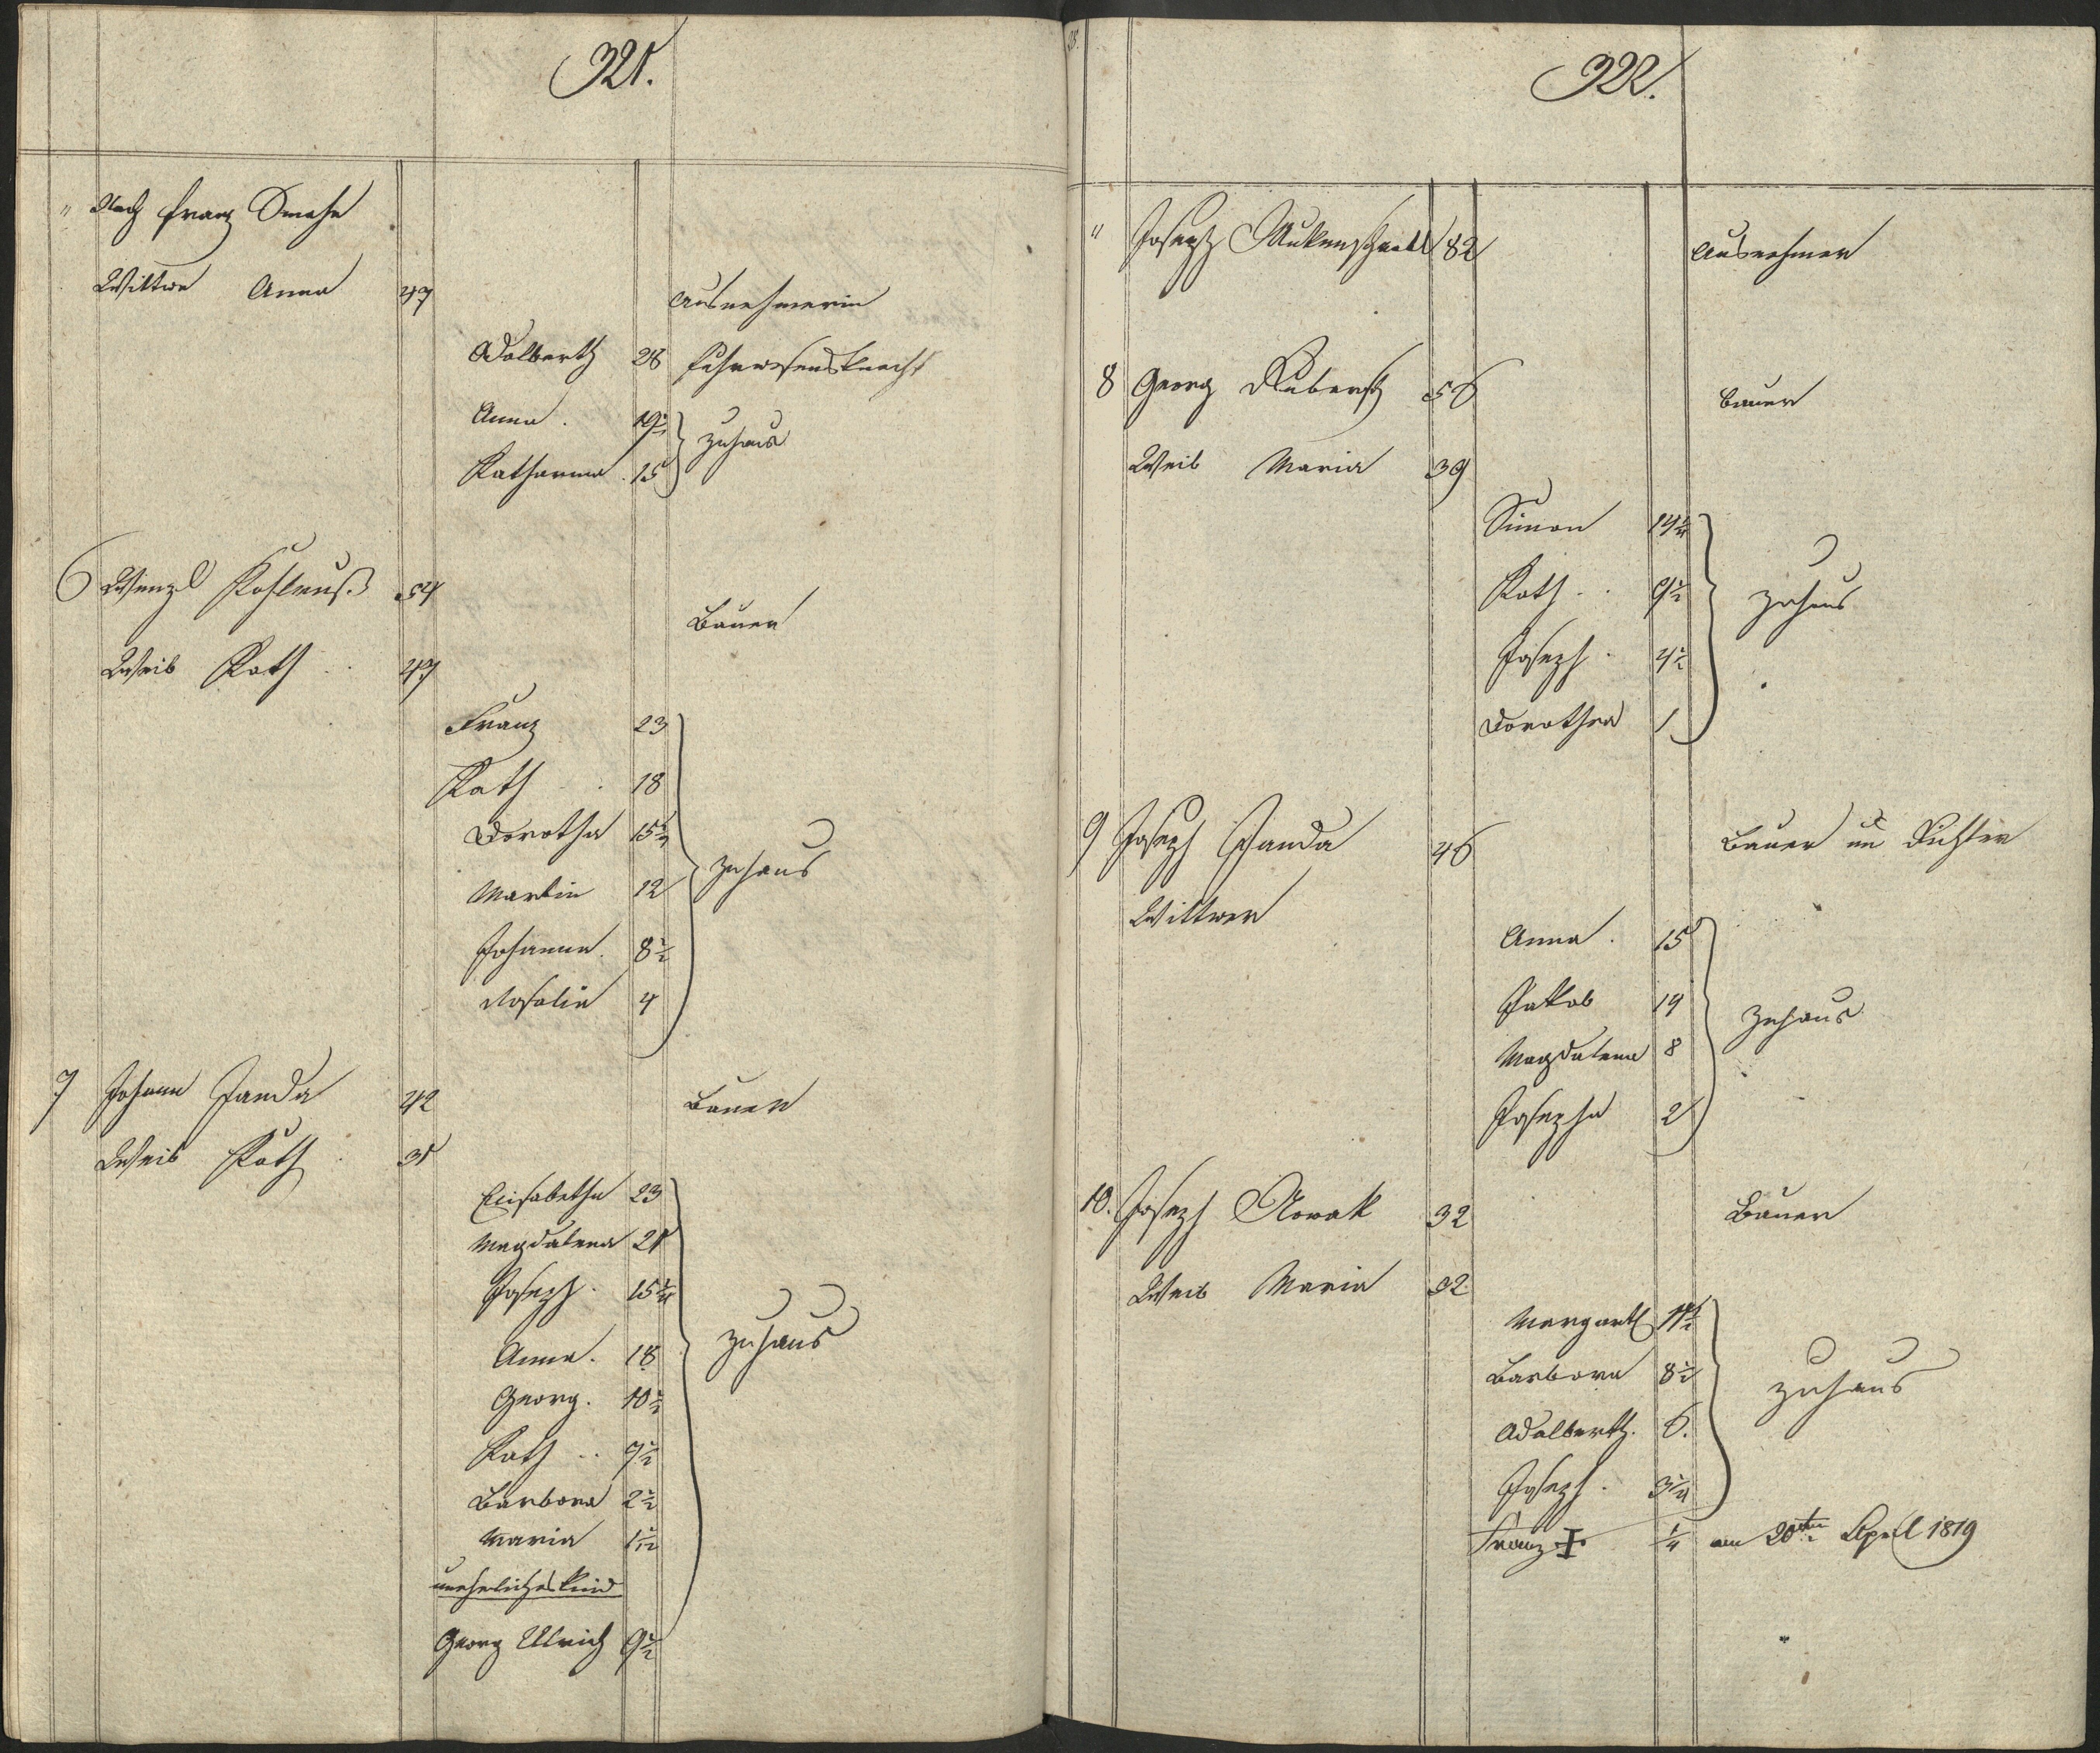 321.
" Nach Franz Smaha
Wittwe Anna 47 Ausnehmerin
Adalberth 28 Fuhrwesensknecht
Anna . 19½
Katharina . 15 zuhaus
6 Wenzl Kohlruß 54 Bauer
Weib Kath . . 47
Franz 23
Kath . . 18
Dorothea 15½
Martin 12 zuhaus
Johanna . 8½
Rosalia 4
7 Johann Janda 42 Bauer
Weib Kath . 31
Elisabetha 23
Magdalena 21
Joseph . 15¾
Anna . 18 zuhaus
Georg . 10½
Kath . . 7½
Barbora 2½
Maria 1½
unehelichs Kind
Georg Ulrich 9½
322.
" Joseph 82 Ausnehmer
8 Georg 56 Bauer
Weib Maria 39
Simon 14¾
Kath . . 9½ zuhaus
Joseph . 4½
Dorothea 1
9 Joseph Janda 46 Bauer un Richter
Wittwer
Anna . 15
Jakob 19 zuhaus
Magdalena 8
Josepha 2
10. Joseph Nowak 32 Bauer
Weib Maria 32
Margareth 11½
Barbora 8½ zuhaus
Adalberth . 6.
Joseph . 3¼
Franz ‡ ¼ am 20ten April 1819